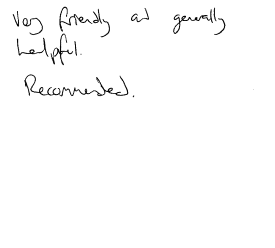 Very friendly and generally
helpful.
Recommended.